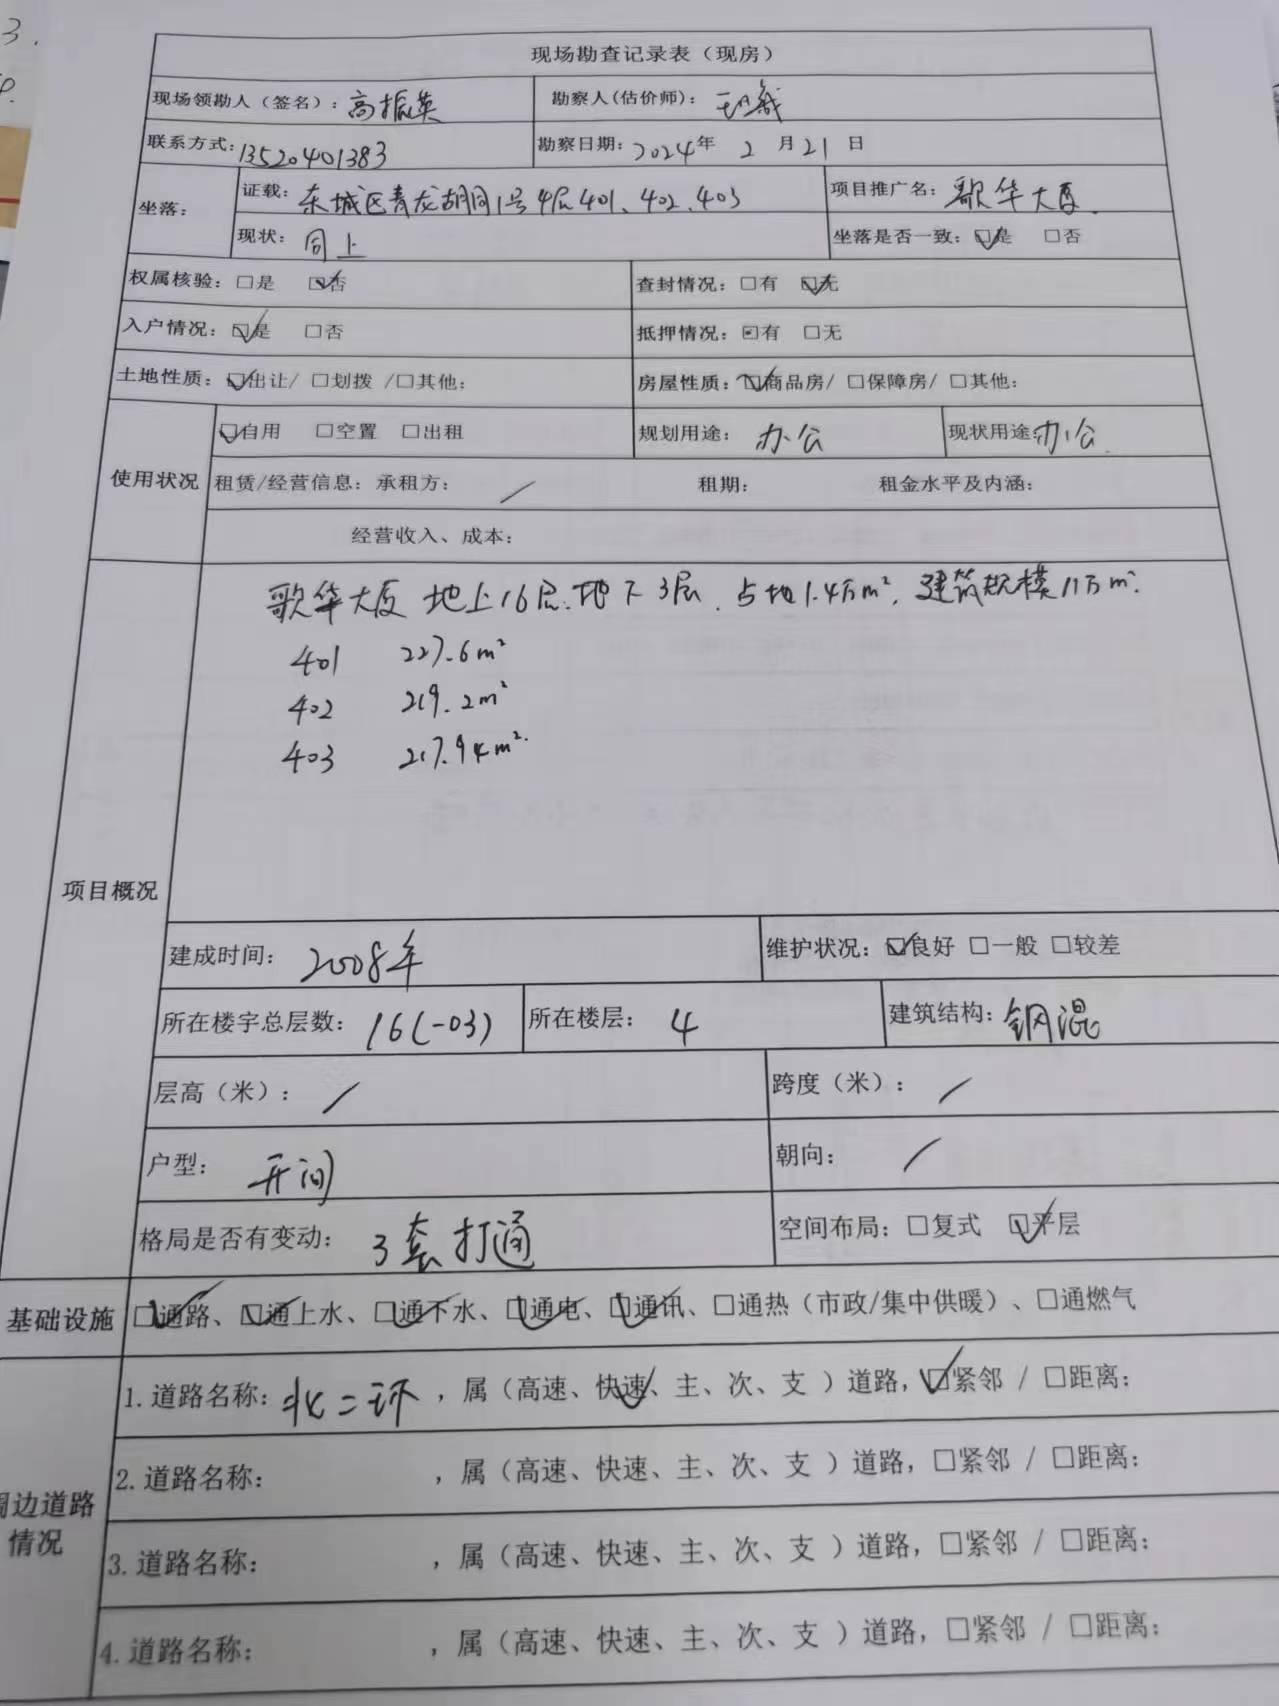 3.
现场勘查记录表（现房）
现场领勘人（签名）：高振英 勘察人(估价师)：
联系方式：13520401383 勘察日期：2024年 2 月 21 日
坐落： 证载：东城区青龙胡同1号4层401、402、403 项目推广名：歌华大厦
现状：同上 坐落是否一致：☑是 □否
权属核验：□是 ☑否 查封情况：□有 ☑无
入户情况：☑是 □否 抵押情况：☑有 □无
土地性质：☑出让/ □划拨 /□其他： 房屋性质：☑商品房/ □保障房/ □其他：
使用状况 ☑自用 □空置 □出租 规划用途：办公 现状用途：办公
租赁/经营信息：承租方： / 租期： 租金水平及内涵：
经营收入、成本：
项目概况
歌华大厦 地上16层、地下3层，占地1.4万m²，建筑规模11万m².
401 227.6m²
402 219.2m²
403 217.94m².
建成时间：2008年 维护状况：☑良好 □一般 □较差
所在楼宇总层数：16(-03) 所在楼层：4 建筑结构：钢混
层高（米）： / 跨度（米）： /
户型：开间 朝向： /
格局是否有变动：3套打通 空间布局：□复式 ☑平层
基础设施 ☑通路、☑通上水、☑通下水、☑通电、☑通讯、□通热（市政/集中供暖）、□通燃气
周边道路情况
1.道路名称：北二环 ，属（高速、快速✓、主、次、支 ）道路，☑紧邻 / □距离：
2.道路名称： ，属（高速、快速、主、次、支 ）道路，□紧邻 / □距离：
3.道路名称： ，属（高速、快速、主、次、支 ）道路，□紧邻 / □距离：
4.道路名称： ，属（高速、快速、主、次、支 ）道路，□紧邻 / □距离：